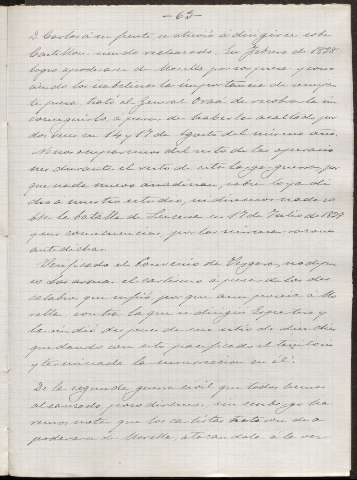 - 63 -
D. Carlos á su frente se atrevió á dirigirse sobre
Castellón, siendo rechazado. En Febrero de 1838
logró apoderarse de Morella por sorpresa y cono
ciendo los isabelinos la importancia de semejan
te presa trató el General Oraá de recobrarla sin
conseguirlo, á pesar de haberla asaltado por
dos veces en 14 y 17 de Agosto del mismo año.
No nos ocuparemos del resto de las operacio
nes durante el resto de esta larga guerra por
que nada nuevo añadirian, sobre lo ya di
cho a nuestro estudio, ni diremos nada so
bre la batalla de Lucena en 17 de Julio de 1839
y sus consecuencias, por las mismas razones
antedichas.
Verificado el Convenio de Vergara, no depu
so las armas el carlismo á pesar de los des
calabros que sufrió por que aun poseia a Mo
rella contra la que se dirigió Espartero y
la rindió despues de seis sitio de diez dias
quedando con esto pacificado el territorio
y terminada la insurreccion en él.
De la segunda guerra civil que todos hemos
alcanzado, poco diremos, sin embargo ha
remos notar que los carlistas trataron de a
poderarse de Morella, atacandola a la ver